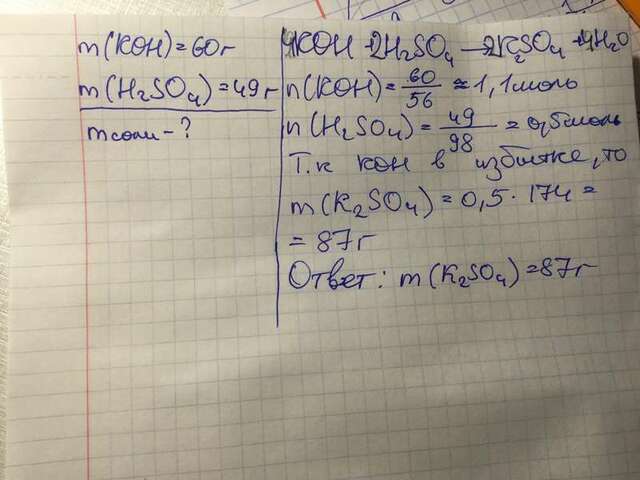 m(KOH)=60г
m(H₂SO₄)=49г
m соли-?
4KOH+2H₂SO₄—2K₂SO₄+4H₂O
n(KOH)=60/56≈1,1моль
n(H₂SO₄)=49/98=0,5моль
Т.к KOH в избытке, то
m(K₂SO₄)=0,5·174=
=87г
Ответ: m(K₂SO₄)=87г